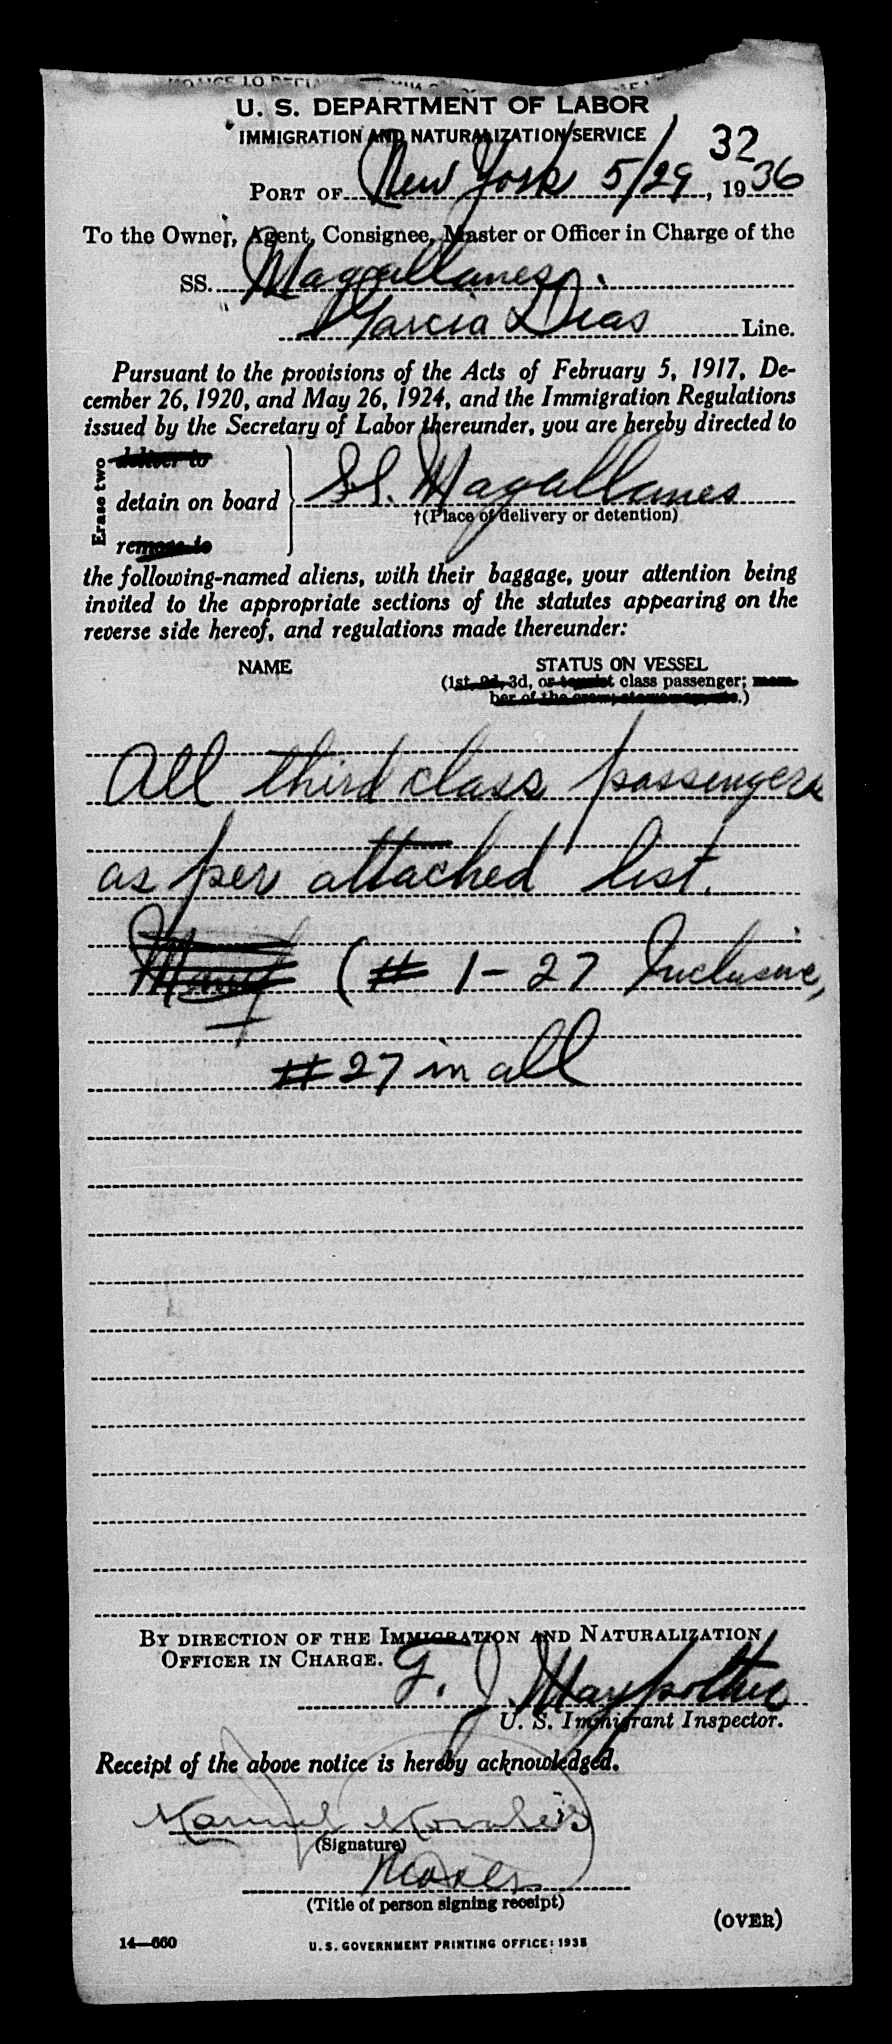 U. S. DEPARTMENT OF LABOR
IMMIGRATION AND NATURALIZATION SERVICE
32
PORT OF New York 5/29, 1936
To the Owner, Agent, Consignee, Master or Officer in Charge of the
SS. Magallanes
Garcia Dias Line.
Pursuant to the provisions of the Acts of February 5, 1917, De-
cember 26, 1920, and May 26, 1924, and the Immigration Regulations
issued by the Secretary of Labor thereunder, you are hereby directed to
Erase two
deliver to
detain on board
remove to
S.S. Magallanes
†(Place of delivery or detention)
the following-named aliens, with their baggage, your attention being
invited to the appropriate sections of the statutes appearing on the
reverse side hereof, and regulations made thereunder:
NAME
STATUS ON VESSEL
(1st, 2d, 3d, or tourist class passenger; mem-
ber of the crew; stowaway, etc.)
All third class passengers
as per attached list.
(# 1 - 27 Inclusive,
#27 in all
BY DIRECTION OF THE IMMIGRATION AND NATURALIZATION
OFFICER IN CHARGE.
F. J.
U. S. Immigrant Inspector.
Receipt of the above notice is hereby acknowledged.
Manuel Morales
(Signature)
(Title of person signing receipt)
(OVER)
14—660
U. S. GOVERNMENT PRINTING OFFICE: 1935